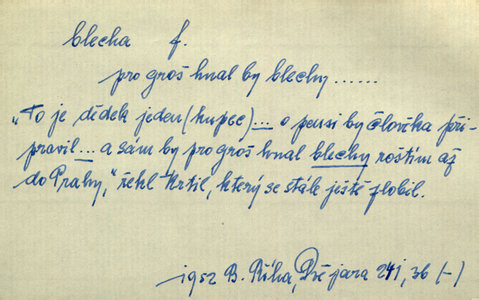 blecha f.
pro groš hnal by blechy ......
„To je dědek jeden (kupec) ... o pensi by člověka při-
pravil ... a sám by pro groš hnal blechy roštím až
do Prahy,“ řekl Krtil, který se stále ještě zlobil.
1952 B. Říha, Dvě jara 241, 36 (-)